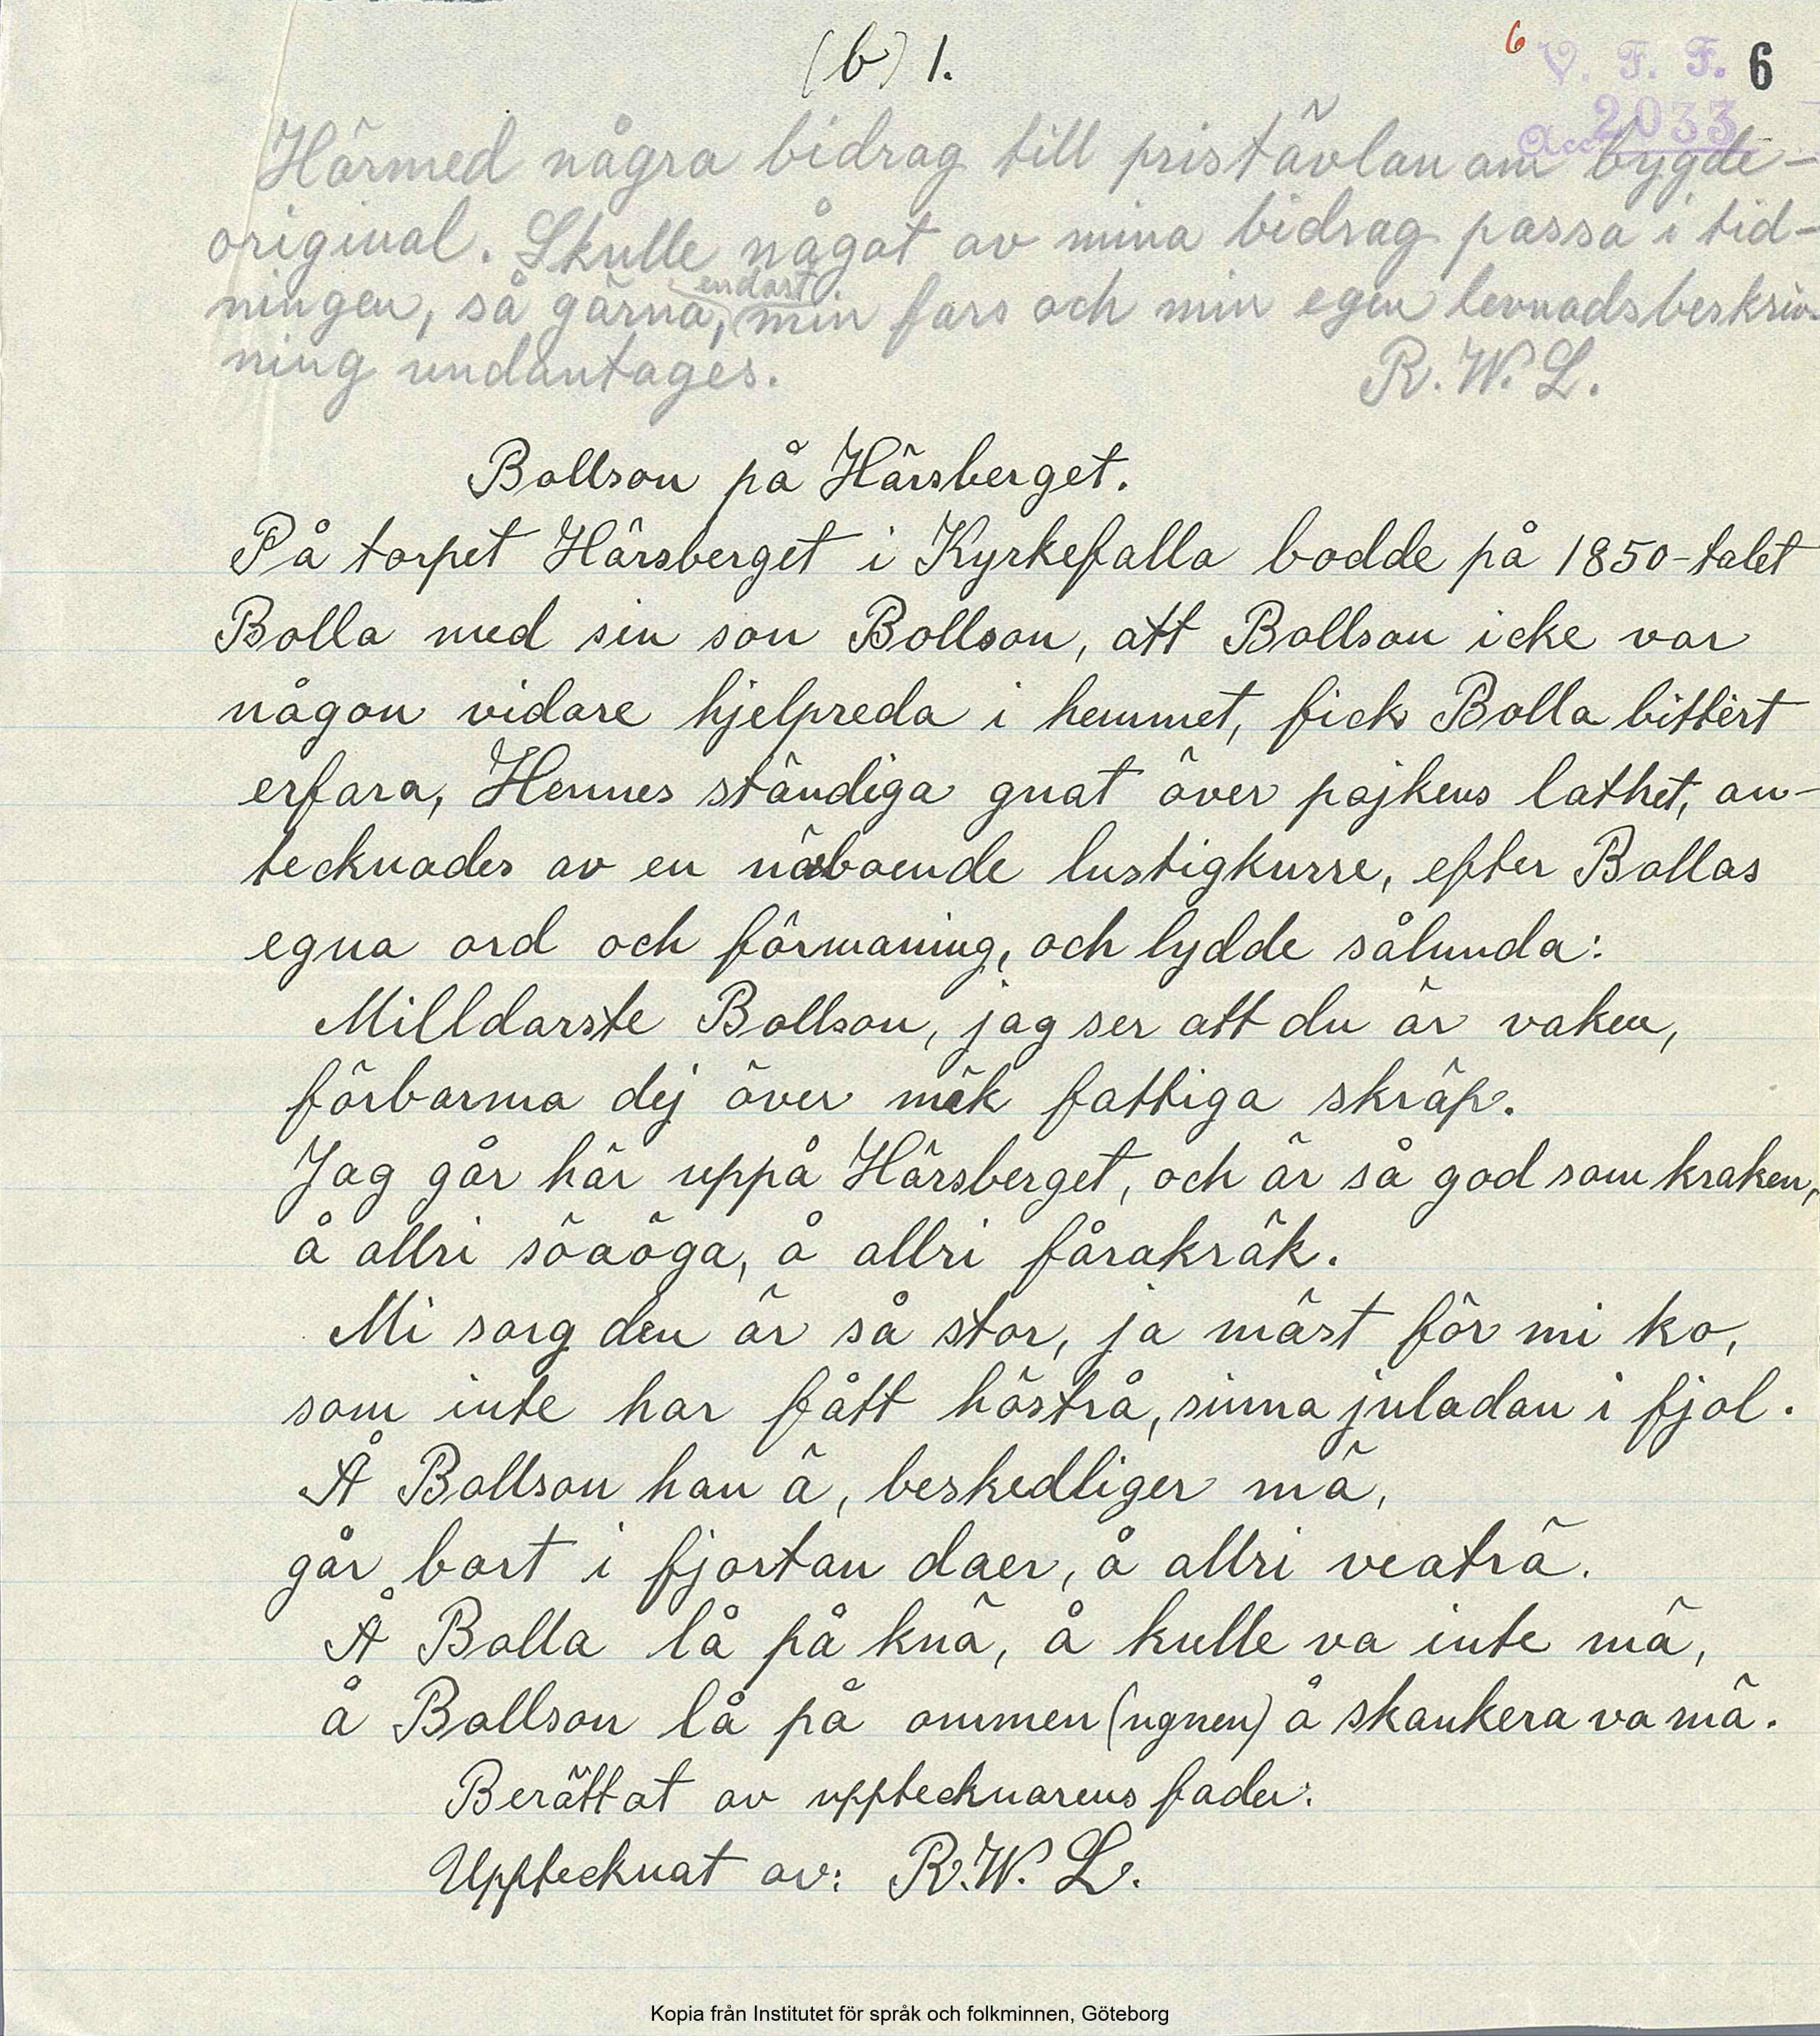 (b) 1.
6
V. F. F. 6
Acc. 2033
Härmed några bidrag till pristävlan om bygde-
original. Skulle något av mina bidrag passa i tid-
endast
ningen, så gärna, min fars och min egen levnadsbeskriv-
ning undantages. R. W. L.
Bollson på Härsberget.
På torpet Härsberget i Kyrkefalla bodde på 1850-talet
Bolla med sin son Bollson, att Bollson icke var
någon vidare hjelpreda i hemmet, fick Bolla bittert
erfara, Hennes ständiga gnat över pojkens lathet, an-
tecknades av en näboende lustigkurre, efter Bollas
egna ord och förmaning, och lydde sålunda:
Milldarste Bollson, jag ser att du är vaken,
förbarma dej över mäk fattiga skräp.
Jag går här uppå Härsberget, och är så god som kraken,
å allri söaöga, å allri fårakräk.
Mi sorg den är så stor, ja mäst för mi ko,
som inte har fått höstrå, sinna juladan i fjol.
Å Bollson han ä, beskedliger mä,
går bort i fjortan daer, å allri veaträ.
Å Bolla lå på knä, å kulle va inte mä,
å Bollson lå på ommen (ugnen) å skankera va mä.
Berättat av upptecknarens fader.
Upptecknat av: R. W. L.
Kopia från Institutet för språk och folkminnen, Göteborg